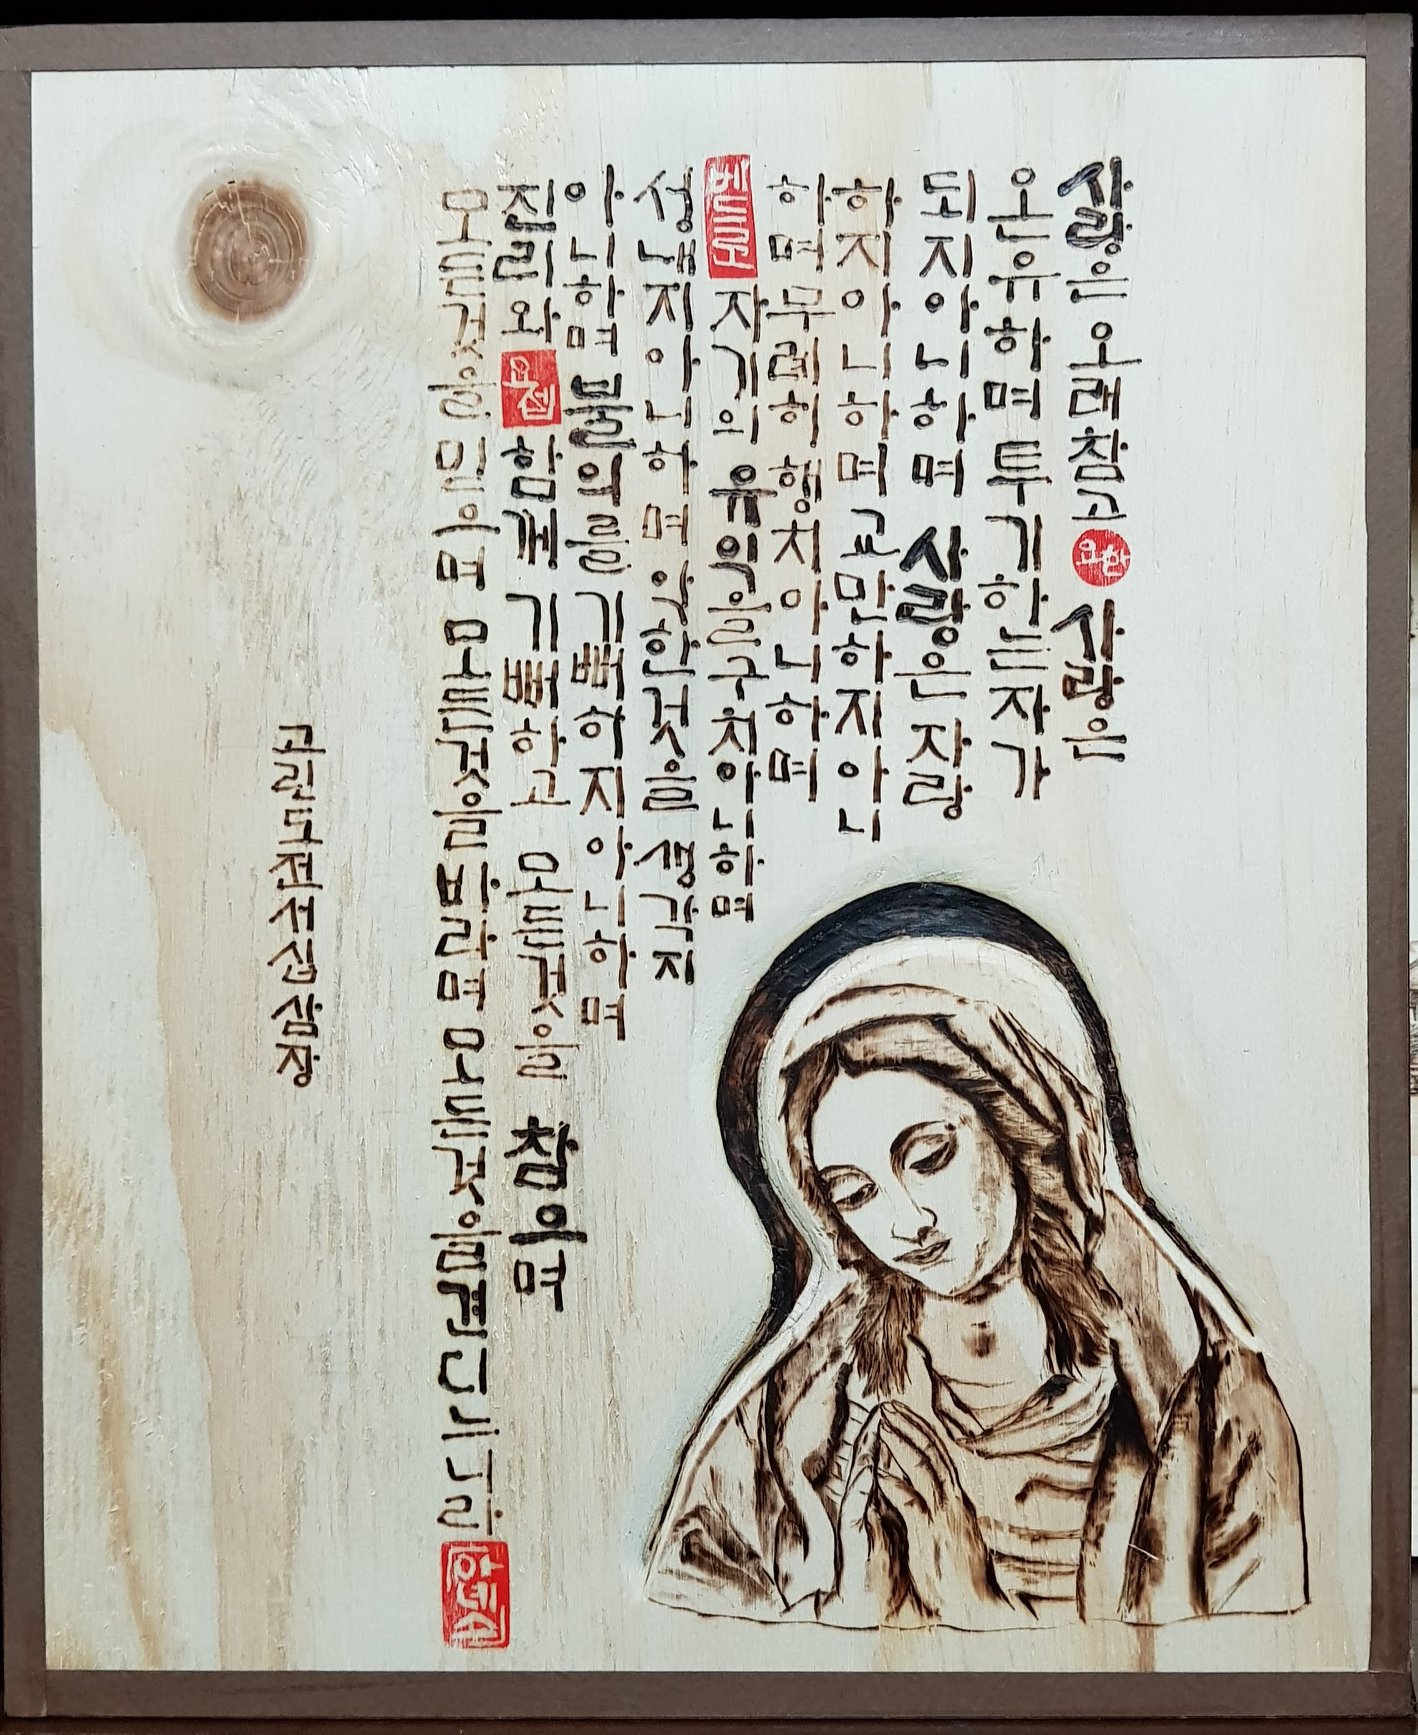 사랑은 오래참고 요한 사랑은
온유하며 투기하는자가
되지아니하며 사랑은 자랑
하지아니하며 교만하지아니
하며 무례히 행치아니하며
베드로 자기의 유익을구치아니하며
성내지아니하며 악한것을 생각지
아니하며 불의를 기뻐하지아니하며
진리와 요셉 함께 기뻐하고 모든것을 참으며
모든것을 믿으며 모든것을 바라며 모든것을
고린도전서십삼장